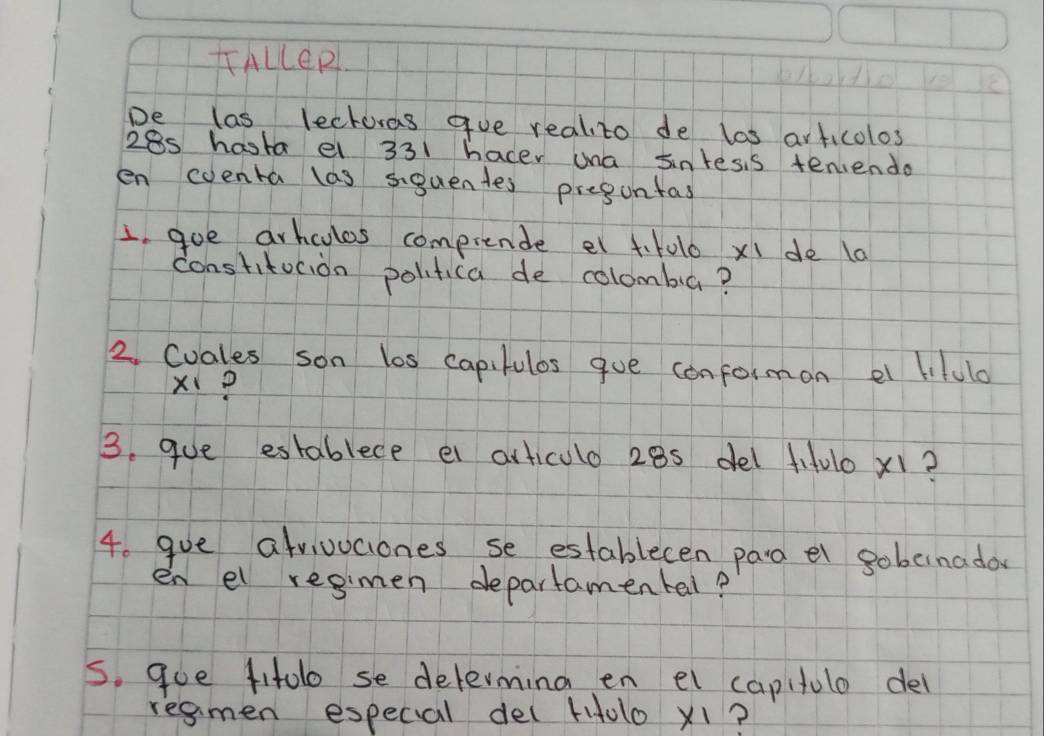 TALLER
De las lecturas que realizo de los articolos
285 hasta el 331 hacer una sintesis teniendo
en cuenta las siguentes preguntas
1. que articulos comprende el titulo XI de la
constitución politica de colombia?
2. Cuales son los capitulos que conforman el titulo
XI?
3. que establece el articulo 285 del titulo XI?
4. que atrivuciones se establecen para el gobernador
en el regimen departamental?
5. que titulo se determina en el capitulo del
regimen especial del titulo XI?